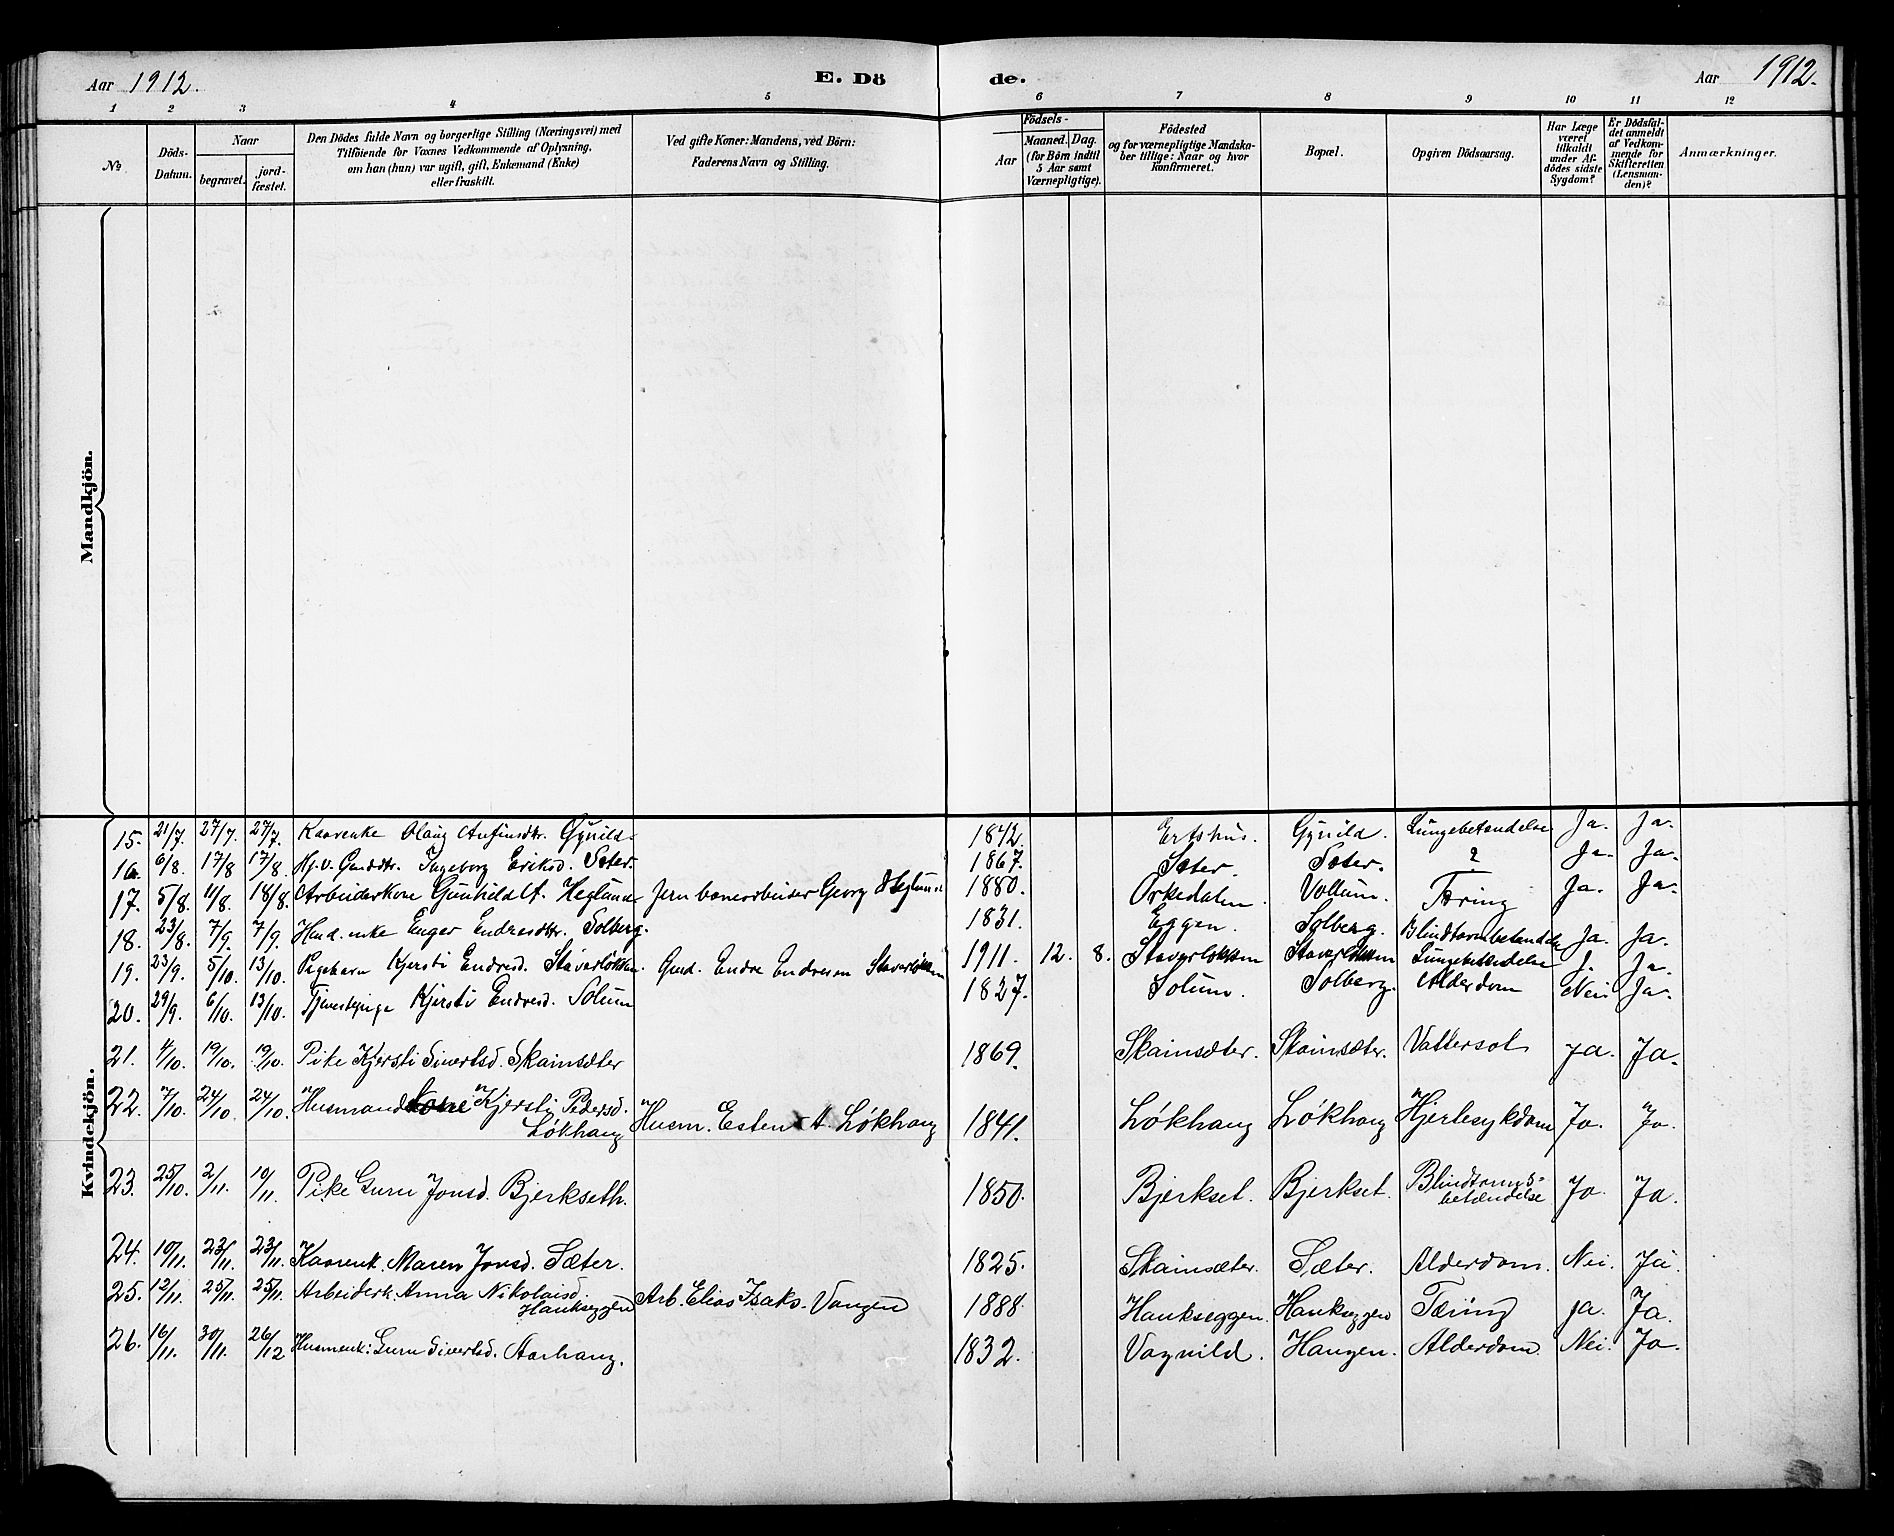 Aar 1912.
E. Dö de.
Aar 1912.
1 2 3 4 5 6 7 8 9 10 11 12
No.
Döds-Datum.
Naar
begravet.
jord-fæstet.
Den Dödes fulde Navn og borgerlige Stilling (Næringsvei) med
Tilföiende for Voxnes Vedkommende af Oplysning,
om han (hun) var ugift, gift, Enkemand (Enke)
eller fraskilt.
Ved gifte Koner: Mandens, ved Börn:
Faderens Navn og Stilling.
Födsels-
Aar
Maaned. Dag.
(for Börn indtil
5 Aar samt
Værnepligtige).
Födested
og for værnepligtige Mandska-
ber tillige: Naar og hvor
konfirmeret.
Bopæl.
Opgiven Dödsaarsag.
Har Læge
været
tilkaldt
under Af-
dödes sidste
Sygdom?
Er Dödsfal-
det anmeldt
af Vedkom-
mende for
Skifteretten
(Lensman-
den)?
Anmærkninger.
Mandkjön.
Kvindekjön.
15. 21/7. 27/7. 27/7. Kaarenke Olaug Anfinsdtr. Gynild. 1842. Ertshus. Gynild. Lungebetændelse Ja. Ja.
16. 6/8. 17/8 17/8. Hj.v. Gaarddtr. Ingeborg Eriksd. Sæter. 1867. Sæter. Sæter. ? Ja. Ja.
17. 5/8. 11/8. 18/8. Arbeiderkone Gunhild A. Heglund Jernbanearbeider Georg Heglund 1880. Orkedalen. Vollum. Tæring Ja. Ja.
18. 23/8. 7/9. 7/9. Enger Endresdtr. Solberg. 1831. Eggen. Solberg. Blindtarmbetændelse Ja. Ja.
19. 23/9. 5/10. 13/10. Pigebarn Kjersti Endresd. Staverløkken. Gmd. Endre Endresen Staverløkken 1911. 12. 8. Staverløkken Staverløkken Lungebetændelse J. Ja.
20. 29/9. 6/10. 13/10. Tjenestepige Kjersti Endresd. Solum 1827. Solum. Solberg. Alderdom Nei. Ja.
21. 4/10. 19/10. 19/10. Pike Kjersti Sivertsd. Skainsæter 1869. Skainsæter. Skainsæter. Vattersot ja. Ja.
22. 7/10. 24/10. 24/10. Husmandskone Kjersti Pedersd.
Løkhaug Husm. Esten A. Løkhaug 1841. Løkhaug Løkhaug Hjertesykdom Ja. Ja.
23. 25/10. 2/11. 10/11. Pike Guru Jonsd. Bjerkseth. 1850. Bjerkset. Bjerkset. Blindtarms-
betændelse Ja. Ja.
24. 10/11. 23/11. 23/11. Kaarenk. Maren Jonsd. Sæter. 1825. Skainsæter. Sæter. Alderdom. Nei. Ja.
25. 12/11. 25/11. 25/11. Arbeiderk. Anna Nikolaisd.
Haukseggen Arb. Elias Isaks. Vangen 1888. Haukseggen. Haukseggen Tæring ja. Ja.
26. 16/11. 30/11. 26/12 Husmenk: Guru Sivertsd. Aarhaug. 1832. Vognild. Haugen. Alderdom. Nei. Ja.